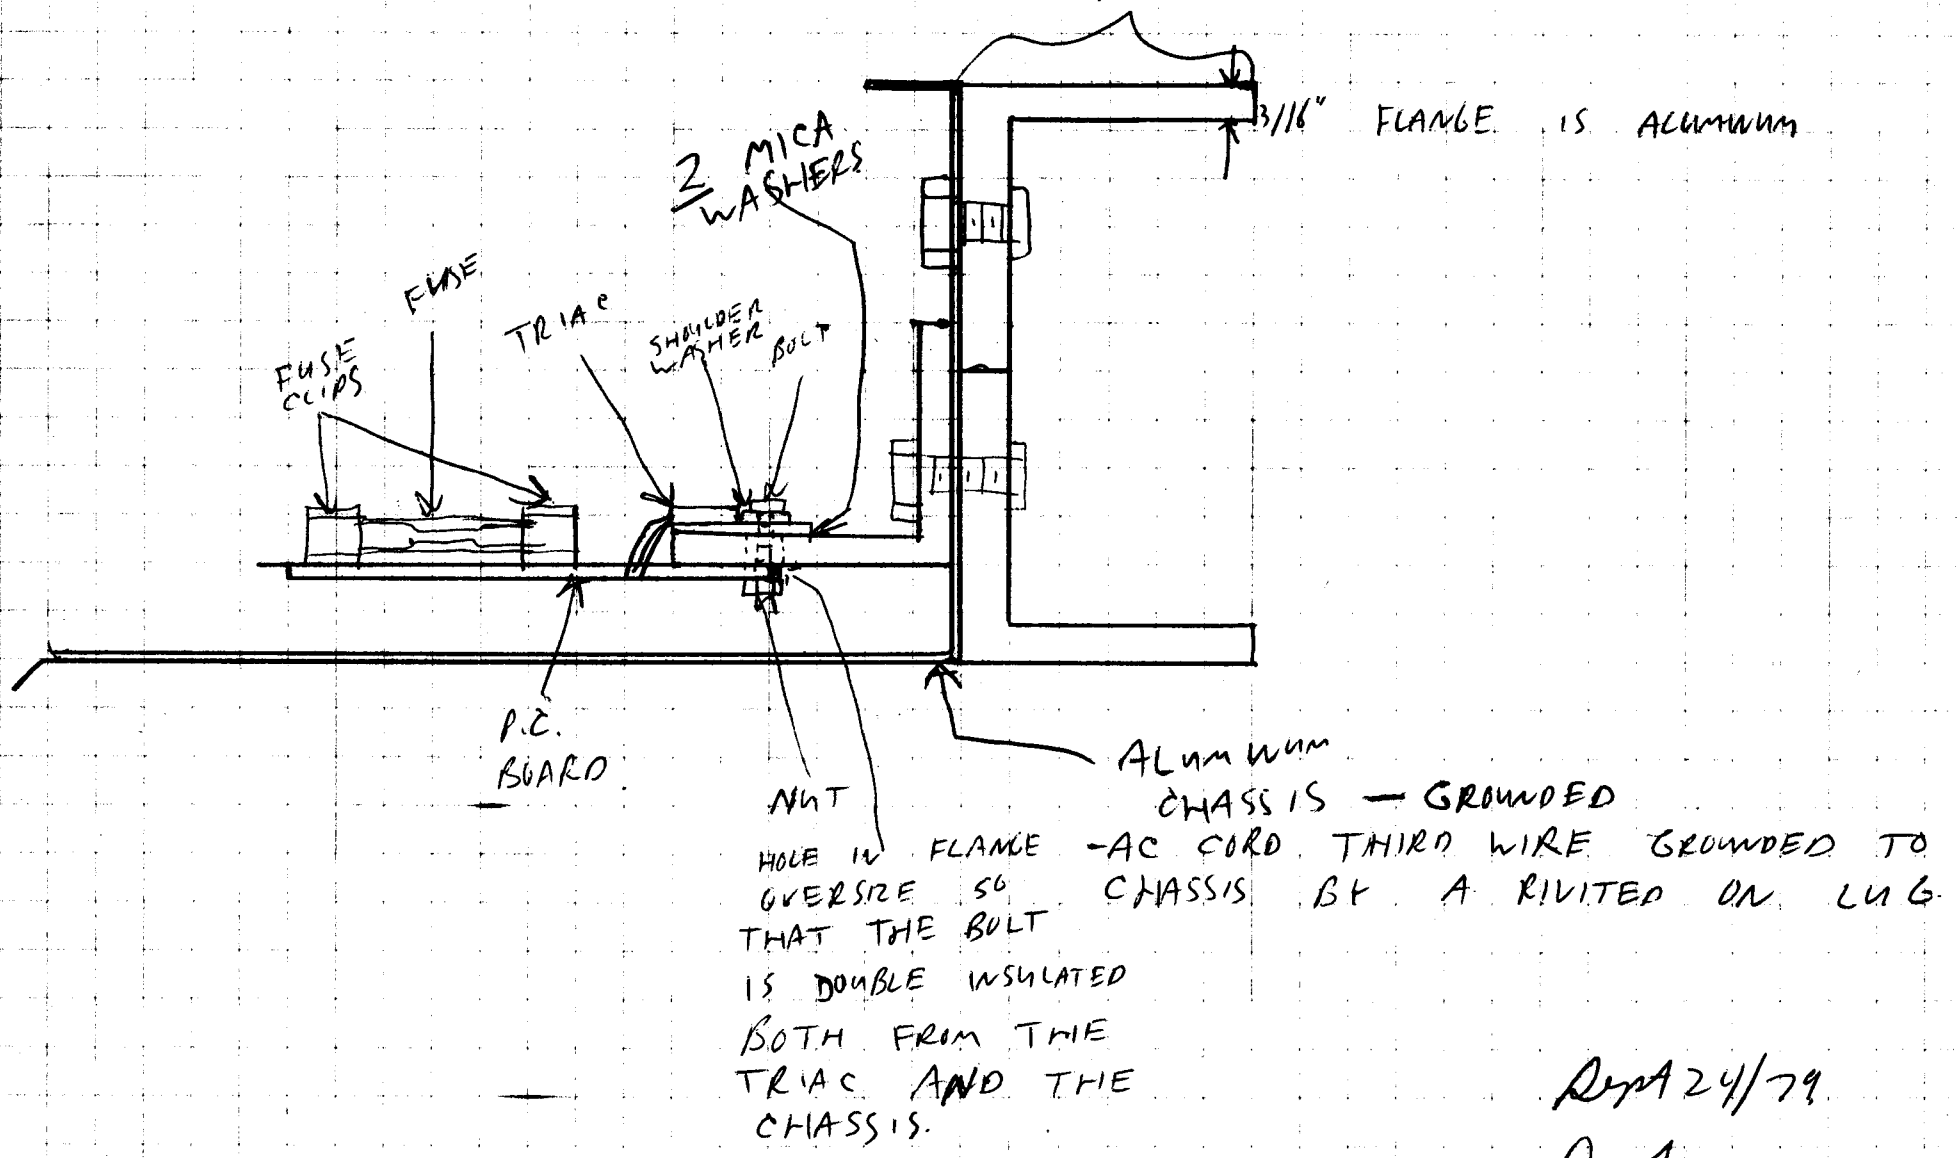 3/16" FLANGE IS ALUMINUM
2 MICA
WASHERS
FUSE
TRIAC
SHOULDER
WASHER
BOLT
FUSE
CLIPS
P.C.
BOARD
NUT
ALUMINUM
CHASSIS — GROUNDED
-AC CORD THIRD WIRE GROUNDED TO
CHASSIS BY A RIVITED ON LUG.
HOLE IN FLANGE
OVERSIZE SO
THAT THE BOLT
IS DOUBLE INSULATED
BOTH FROM THE
TRIAC AND THE
CHASSIS.
Sept 24/79